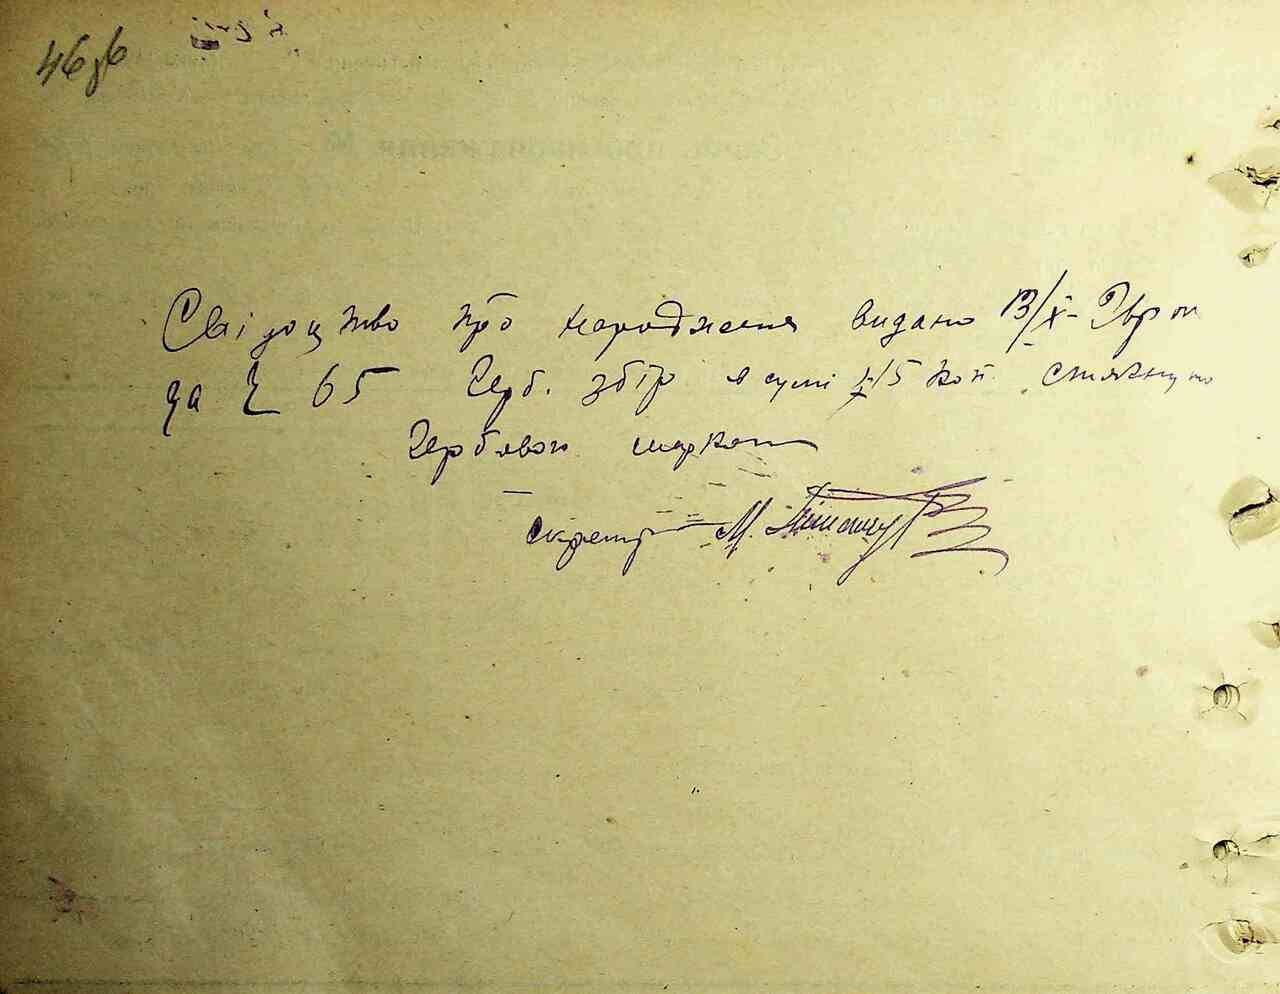 46 об
Свідоцтво про народження видано 13/X-
за № 65 Герб. збір в сумі 15 коп. стягнуто
гербовою маркою
секретар М.